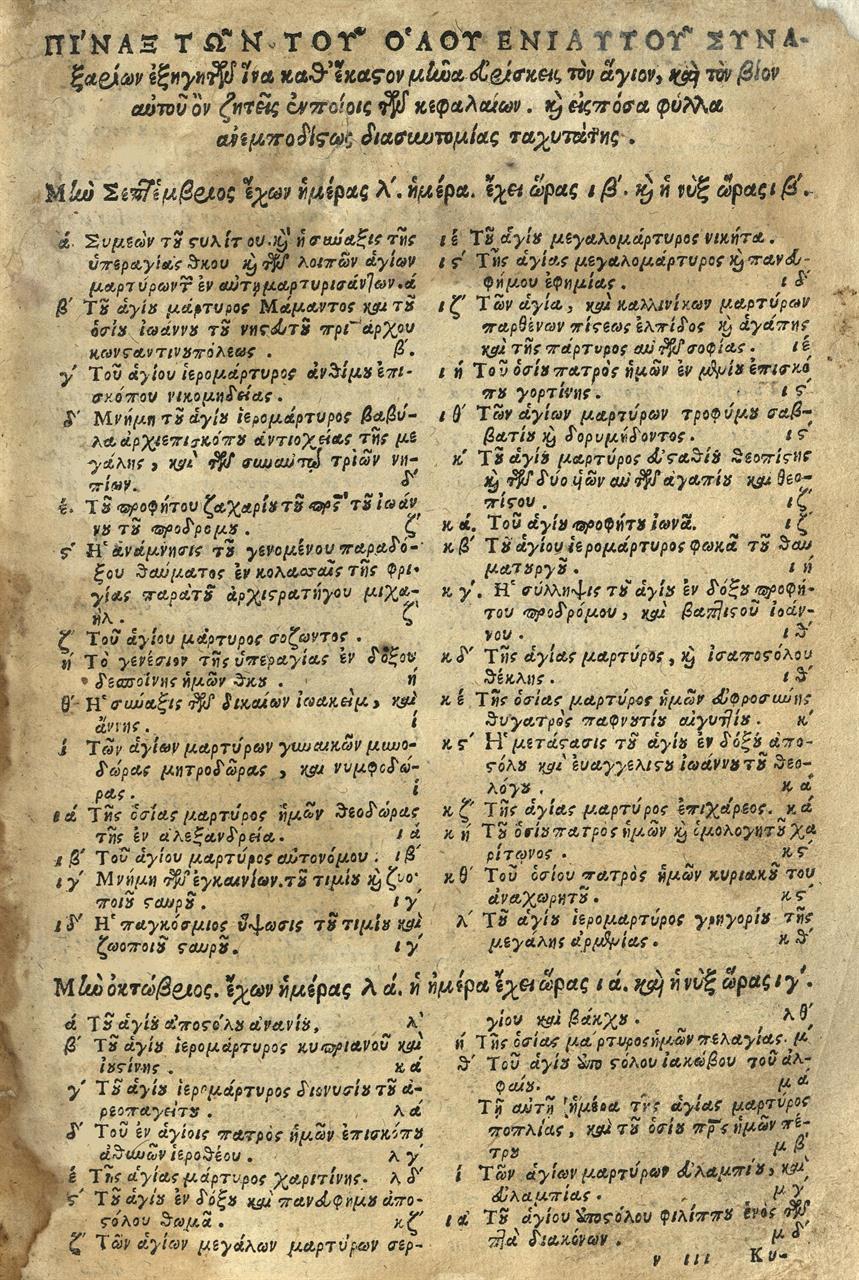 ΠΙ΄ΝΑΞ ΤΩ͂Ν ΤΟΥ͂ Ο῞ΛΟΥ ΕΝΙΑΥΤΟΥ͂ ΣΥΝΑ-
ξαρίων ἐξηγητῶν ἵνα καθ' ἕκαστον μῆνα εὑρίσκεις τὸν ἅγιον, καὶ τὸν βίον
αὐτοῦ ὃν ζητεῖς ἐν ποίοις τῶν κεφαλαίων. καὶ εἰς πόσα φύλλα
ἀνεμποδίστως διασυντομίας ταχυτάτης.
Μὴν Σεπτέμβριος ἔχων ἡμέρας λ΄. ἡμέρα. ἔχει ὥρας ιβ΄. καὶ ἡ νὺξ ὥρας ιβ΄.
ά Συμεὼν τοῦ στυλίτου. καὶ ἡ σύναξις τῆς
ὑπεραγίας θκου καὶ τῶν λοιπῶν ἁγίων
μαρτύρων τῶν ἐν αὐτῇ μαρτυρισάντων. ά
β΄ Τοῦ ἁγίου μάρτυρος Μάμαντος καὶ τοῦ
ὁσίου ἰωάννου τοῦ νηστευτοῦ πριάρχου
κωνσταντινυπόλεως. β΄.
γ΄ Τοῦ ἁγίου ἱερομάρτυρος ἀνθίμου ἐπι-
σκόπου νικομηδείας.
δ΄ Μνήμη τοῦ ἁγίου ἱερομάρτυρος βαβύ-
λα ἀρχιεπισκόπου ἀντιοχείας τῆς με
γάλης, καὶ τῶν συναυτῷ τριῶν νη-
πίων. δ΄
έ. Τοῦ προφήτου ζαχαρίου τοῦ πρς τοῦ ἰωάν
νου τοῦ προδρόμου. ζ΄
ς΄ Ἡ ἀνάμνησις τοῦ γενομένου παραδό-
ξου θαύματος ἐν κολασσαῖς τῆς φρι-
γίας παρὰ τοῦ ἀρχιστρατήγου μιχα-
ήλ. ζ΄
ζ΄ Τοῦ ἁγίου μάρτυρος σοζωντος.
ή Τὸ γενέσιον τῆς ὑπεραγίας ἐν δόξου
δεσποίνης ἡμῶν θκου. ή
θ΄ Ἡ σύναξις τῶν δικαίων ἰωακεὶμ, καὶ
ἄννης. ί
ί Τῶν ἁγίων μαρτύρων γυναικῶν μηνο-
δώρας μητροδῶρας, καὶ νυμφοδώ-
ρας. ί
ιά Τῆς ὁσίας μάρτυρος ἡμῶν θεοδώρας
τῆς ἐν αλεξανδρεία. ιά
ιβ΄ Τοῦ ἁγίου μάρτυρος αὐτονόμου. ιβ΄
ιγ΄ Μνήμη τῶν ἐγκαινίων. τοῦ τιμίου καὶ ζυο-
ποιοῦ σταυροῦ. ιγ΄
ιδ΄ Ἡ παγκόσμιος ὕψωσις τοῦ τιμίου καὶ
ζωοποιοῦ σταυροῦ. ιγ΄
ιέ Τοῦ ἁγίου μεγαλομάρτυρος νικήτα.
ις΄ Τῆς ἁγίας μεγαλομάρτυρος καὶ πανευ-
φήμου ἐφημίας. ιδ΄
ιζ΄ Τῶν ἁγία, καὶ καλλινίκων μαρτύρων
παρθένων πίστεως ἐλπίδος καὶ ἀγάπης
καὶ τῆς μάρτυρος αὐτῶν σοφίας. ιέ
ιή Τοῦ ὁσίου πατρὸς ἡμῶν ἐν μθνίου ἐπισκό
που γορτίνης. ις΄
ιθ΄ Τῶν ἁγίων μαρτύρων τροφύμου σαβ-
βατίου καὶ δορυμήδοντος. ις΄
κ΄ Τοῦ ἁγίου μαρτύρος εὐσταθίου θεοπίστης
καὶ τῶν δύο ὑῶν αὐτῶν ἀγαπίου καὶ θεο-
πίστου. ιζ΄
κά. Τοῦ ἁγίου προφήτου ἰωνᾶ. ιζ΄
κβ΄ Τοῦ ἁγίου ἱερομάρτυρος φωκᾶ τοῦ θαυ
ματυργοῦ. ιή
κγ΄. Ἡ σύλληψις τοῦ ἁγίου ἐν δόξου προφή-
του προδρόμου, καὶ βαπτιστοῦ ἰοάν-
νου. ιθ΄
κδ΄ Τῆς ἁγίας μαρτύρος, καὶ ἰσαποστόλου
θέκλης. ιθ΄
κέ Τῆς ὁσίας μαρτύρος ἡμῶν εὐφροσύνης
θυγατρὸς παφνουτίου αἰγυπτίου. κ΄
κς΄ Ἡ μετάστασις τοῦ ἁγίου ἐν δόξου ἀπο-
στόλου καὶ ἐυαγγελιστοῦ ἰωάννου τοῦ θεο-
λόγου. κά
κζ΄ Τῆς ἁγίας μαρτύρος ἐπιχάρεος. κά
κή Τοῦ ὁσίου πατρος ἡμῶν καὶ ὁμολογητοῦ χα
ρίτωνος. κς΄
κθ΄ Τοῦ ὁσίου πατρὸς ἡμῶν κυριακοῦ του
ἀναχωρητοῦ. κς΄
λ΄ Τοῦ ἁγίου ἱερομαρτύρος γρηγορίου τῆς
μεγάλης ἀρμενίας. κθ΄
Μὴν ὀκτώβριος. ἔχων ἡμέρας λά. ἡ ἡμέρα ἔχει ὥρας ιά. καὶ ἡ νὺξ ὥρας ιγ΄.
ά Τοῦ ἁγίου ἀποστόλου ἀνανίου, λ΄
β΄ Τοῦ ἁγίου ἱερομάρτυρος κυπριανοῦ καὶ
ἰυστίνης. κά
γ΄ Τοῦ ἁγίου ἱερομάρτυρος διονυσίου τοῦ ἀ-
ρεοπαγείτου. λά
δ΄ Τοῦ ἐν ἁγίοις πατρὸς ἡμῶν ἐπισκόπου
ἀθηνῶν ἱεροθέου. λγ΄
έ Τῆς ἁγίας μάρτυρος χαριτίνης. λδ΄
ς΄ Τοῦ ἁγίου ἐν δόξου καὶ πανευφήμου ἀπο-
στόλου θωμᾶ. κζ΄
ζ΄ Τῶν ἁγίων μεγάλων μαρτύρων σερ-
γίου καὶ βάκχου. λθ΄
ή Τῆς ὁσίας μαρτυρος ἡμῶν πελαγίας. μ΄
θ΄ Τοῦ ἁγίου ἀποστόλου ἰακώβου τοῦ ἀλ-
φαίου. μά
Τῇ αὐτῇ ἡμέρα τῆς ἁγίας μαρτύρος
ποπλίας, καὶ τοῦ ὁσίου πρς ἡμῶν πέ-
τρου μβ΄
ί Τῶν ἁγίων μαρτύρων εὐλαμπίου, καὶ
εὐλαμπίας. μγ΄
ιά Τοῦ ἁγίου ἀποστόλου φιλίππου ἑνὸς τῶν
ἑπτὰ διακόνων. μδ΄
ν ιιι Κυ-